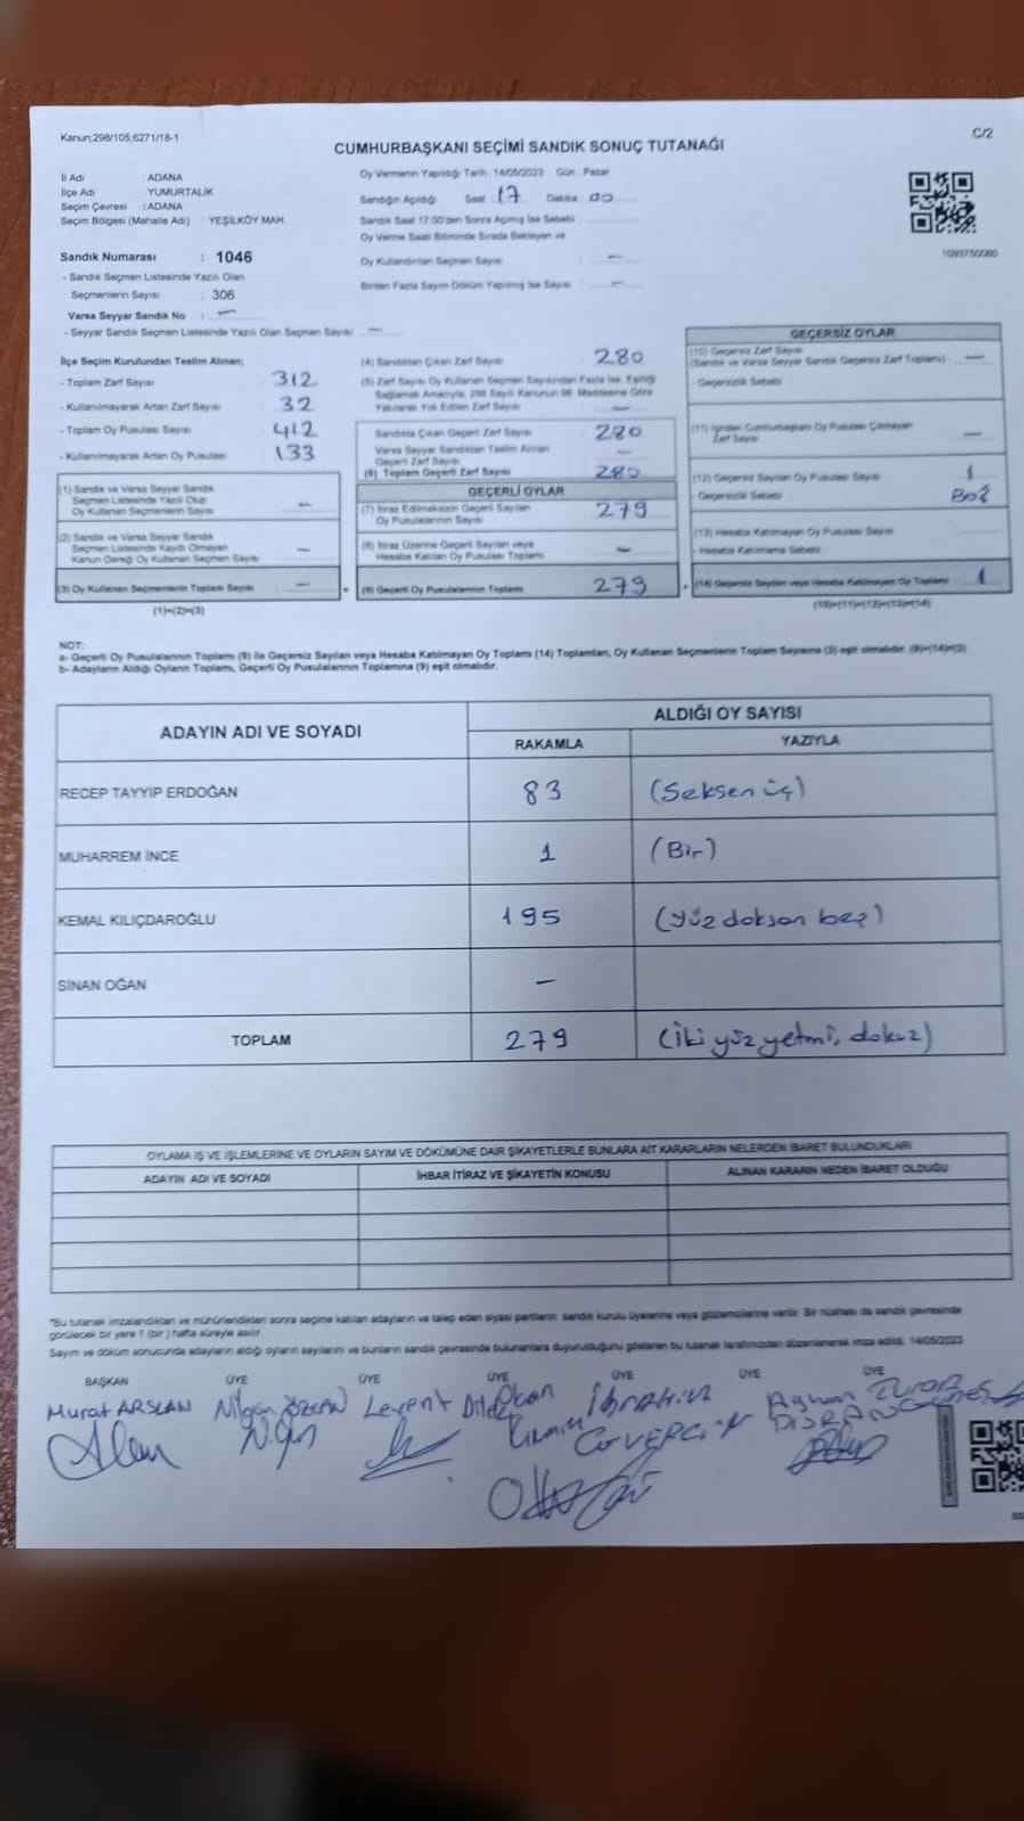 Kanun:298/105,6271/18-1
C/2
CUMHURBAŞKANI SEÇİMİ SANDIK SONUÇ TUTANAĞI
İl Adı ADANA
İlçe Adı YUMURTALIK
Seçim Çevresi : ADANA
Seçim Bölgesi (Mahalle Adı) YEŞİLKÖY MAH.
Oy Vermenin Yapıldığı Tarih: 14/05/2023 Gün: Pazar
Sandığın Açıldığı Saat 17 Dakika 00
Sandık Saat 17:00'den Sonra Açılmış İse Sebebi
Oy Verme Saati Bitiminde Sırada Bekleyen ve
Oy Kullandırılan Seçmen Sayısı : —
Birden Fazla Sayım Döküm Yapılmış İse Sayısı : —
Sandık Numarası : 1046
- Sandık Seçmen Listesinde Yazılı Olan
Seçmenlerin Sayısı : 306
Varsa Seyyar Sandık No : —
- Seyyar Sandık Seçmen Listesinde Yazılı Olan Seçmen Sayısı —
İlçe Seçim Kurulundan Teslim Alınan;
- Toplam Zarf Sayısı 312
- Kullanılmayarak Artan Zarf Sayısı 32
- Toplam Oy Pusulası Sayısı 412
- Kullanılmayarak Artan Oy Pusulası 133
(1) Sandık ve Varsa Seyyar Sandık
Seçmen Listesinde Yazılı Olup
Oy Kullanan Seçmenlerin Sayısı —
(2) Sandık ve Varsa Seyyar Sandık
Seçmen Listesinde Kayıtlı Olmayan
Kanun Gereği Oy Kullanan Seçmen Sayısı —
(3) Oy Kullanan Seçmenlerin Toplam Sayısı —
(1)+(2)=(3)
(4) Sandıktan Çıkan Zarf Sayısı 280
(5) Zarf Sayısı Oy Kullanan Seçmen Sayısından Fazla İse, Eşitliği
Sağlamak Amacıyla, 298 Sayılı Kanunun 98. Maddesine Göre
Yakılarak Yok Edilen Zarf Sayısı —
Sandıkta Çıkan Geçerli Zarf Sayısı 280
Varsa Seyyar Sandıktan Teslim Alınan
Geçerli Zarf Sayısı —
(6) Toplam Geçerli Zarf Sayısı 280
GEÇERLİ OYLAR
(7) İtiraz Edilmeksizin Geçerli Sayılan
Oy Pusulalarının Sayısı 279
(8) İtiraz Üzerine Geçerli Sayılan veya
Hesaba Katılan Oy Pusulası Toplamı —
(9) Geçerli Oy Pusulalarının Toplamı 279
GEÇERSİZ OYLAR
(10) Geçersiz Zarf Sayısı
(Sandık ve Varsa Seyyar Sandık Geçersiz Zarf Toplamı) —
- Geçersizlik Sebebi
(11) İçinden Cumhurbaşkanı Oy Pusulası Çıkmayan
Zarf Sayısı —
(12) Geçersiz Sayılan Oy Pusulası Sayısı 1
- Geçersizlik Sebebi Boş
(13) Hesaba Katılmayan Oy Pusulası Sayısı
- Hesaba Katılmama Sebebi
(14) Geçersiz Sayılan veya Hesaba Katılmayan Oy Toplamı 1
(10)+(11)+(12)+(13)=(14)
NOT:
a- Geçerli Oy Pusulalarının Toplamı (9) ile Geçersiz Sayılan veya Hesaba Katılmayan Oy Toplamı (14) Toplamları, Oy Kullanan Seçmenlerin Toplam Sayısına (3) eşit olmalıdır. (9)+(14)=(3)
b- Adayların Aldığı Oyların Toplamı, Geçerli Oy Pusulalarının Toplamına (9) eşit olmalıdır.
ADAYIN ADI VE SOYADI
ALDIĞI OY SAYISI
RAKAMLA YAZIYLA
RECEP TAYYİP ERDOĞAN 83 (Seksen üç)
MUHARREM İNCE 1 (Bir)
KEMAL KILIÇDAROĞLU 195 (yüz doksan beş)
SİNAN OĞAN —
TOPLAM 279 (iki yüz yetmiş dokuz)
OYLAMA İŞ VE İŞLEMLERİNE VE OYLARIN SAYIM VE DÖKÜMÜNE DAİR ŞİKAYETLERLE BUNLARA AİT KARARLARIN NELERDEN İBARET BULUNDUKLARI
ADAYIN ADI VE SOYADI İHBAR İTİRAZ VE ŞİKAYETİN KONUSU ALINAN KARARIN NEDEN İBARET OLDUĞU
"Bu tutanak imzalandıktan ve mühürlendikten sonra seçime katılan adayların ve talep eden siyasi partilerin sandık kurulu üyelerine veya gözlemcilerine verilir. Bir nüshası da sandık çevresinde
görülecek bir yere 1 (bir) hafta süreyle asılır.
Sayım ve döküm sonucunda adayların aldığı oyların sayılarını ve bunların sandık çevresinde bulunanlara duyurulduğunu gösteren bu tutanak tarafımızdan düzenlenerek imza edildi. 14/05/2023
BAŞKAN ÜYE ÜYE ÜYE ÜYE ÜYE ÜYE
Murat ARSLAN Nilgün Levent Okan İbrahim Ayhan
GÜVERCİN